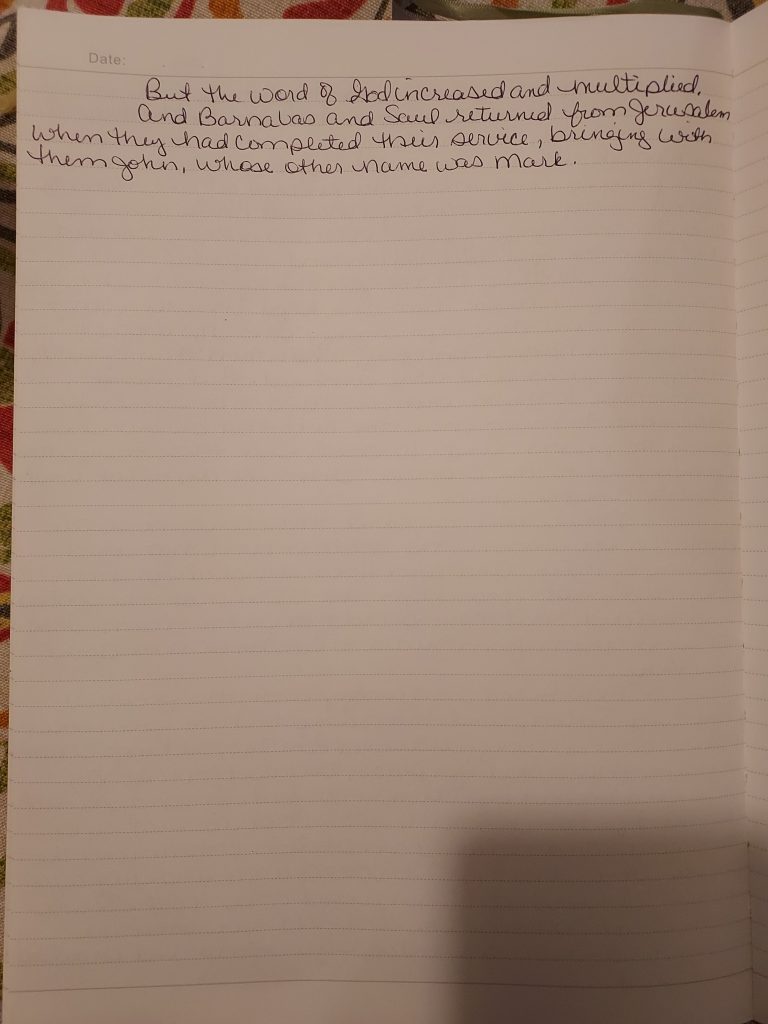 Date:
But the word of God increased and multiplied.
And Barnabas and Saul returned from Jerusalem
when they had completed their service, bringing with
them John, whose other name was Mark.